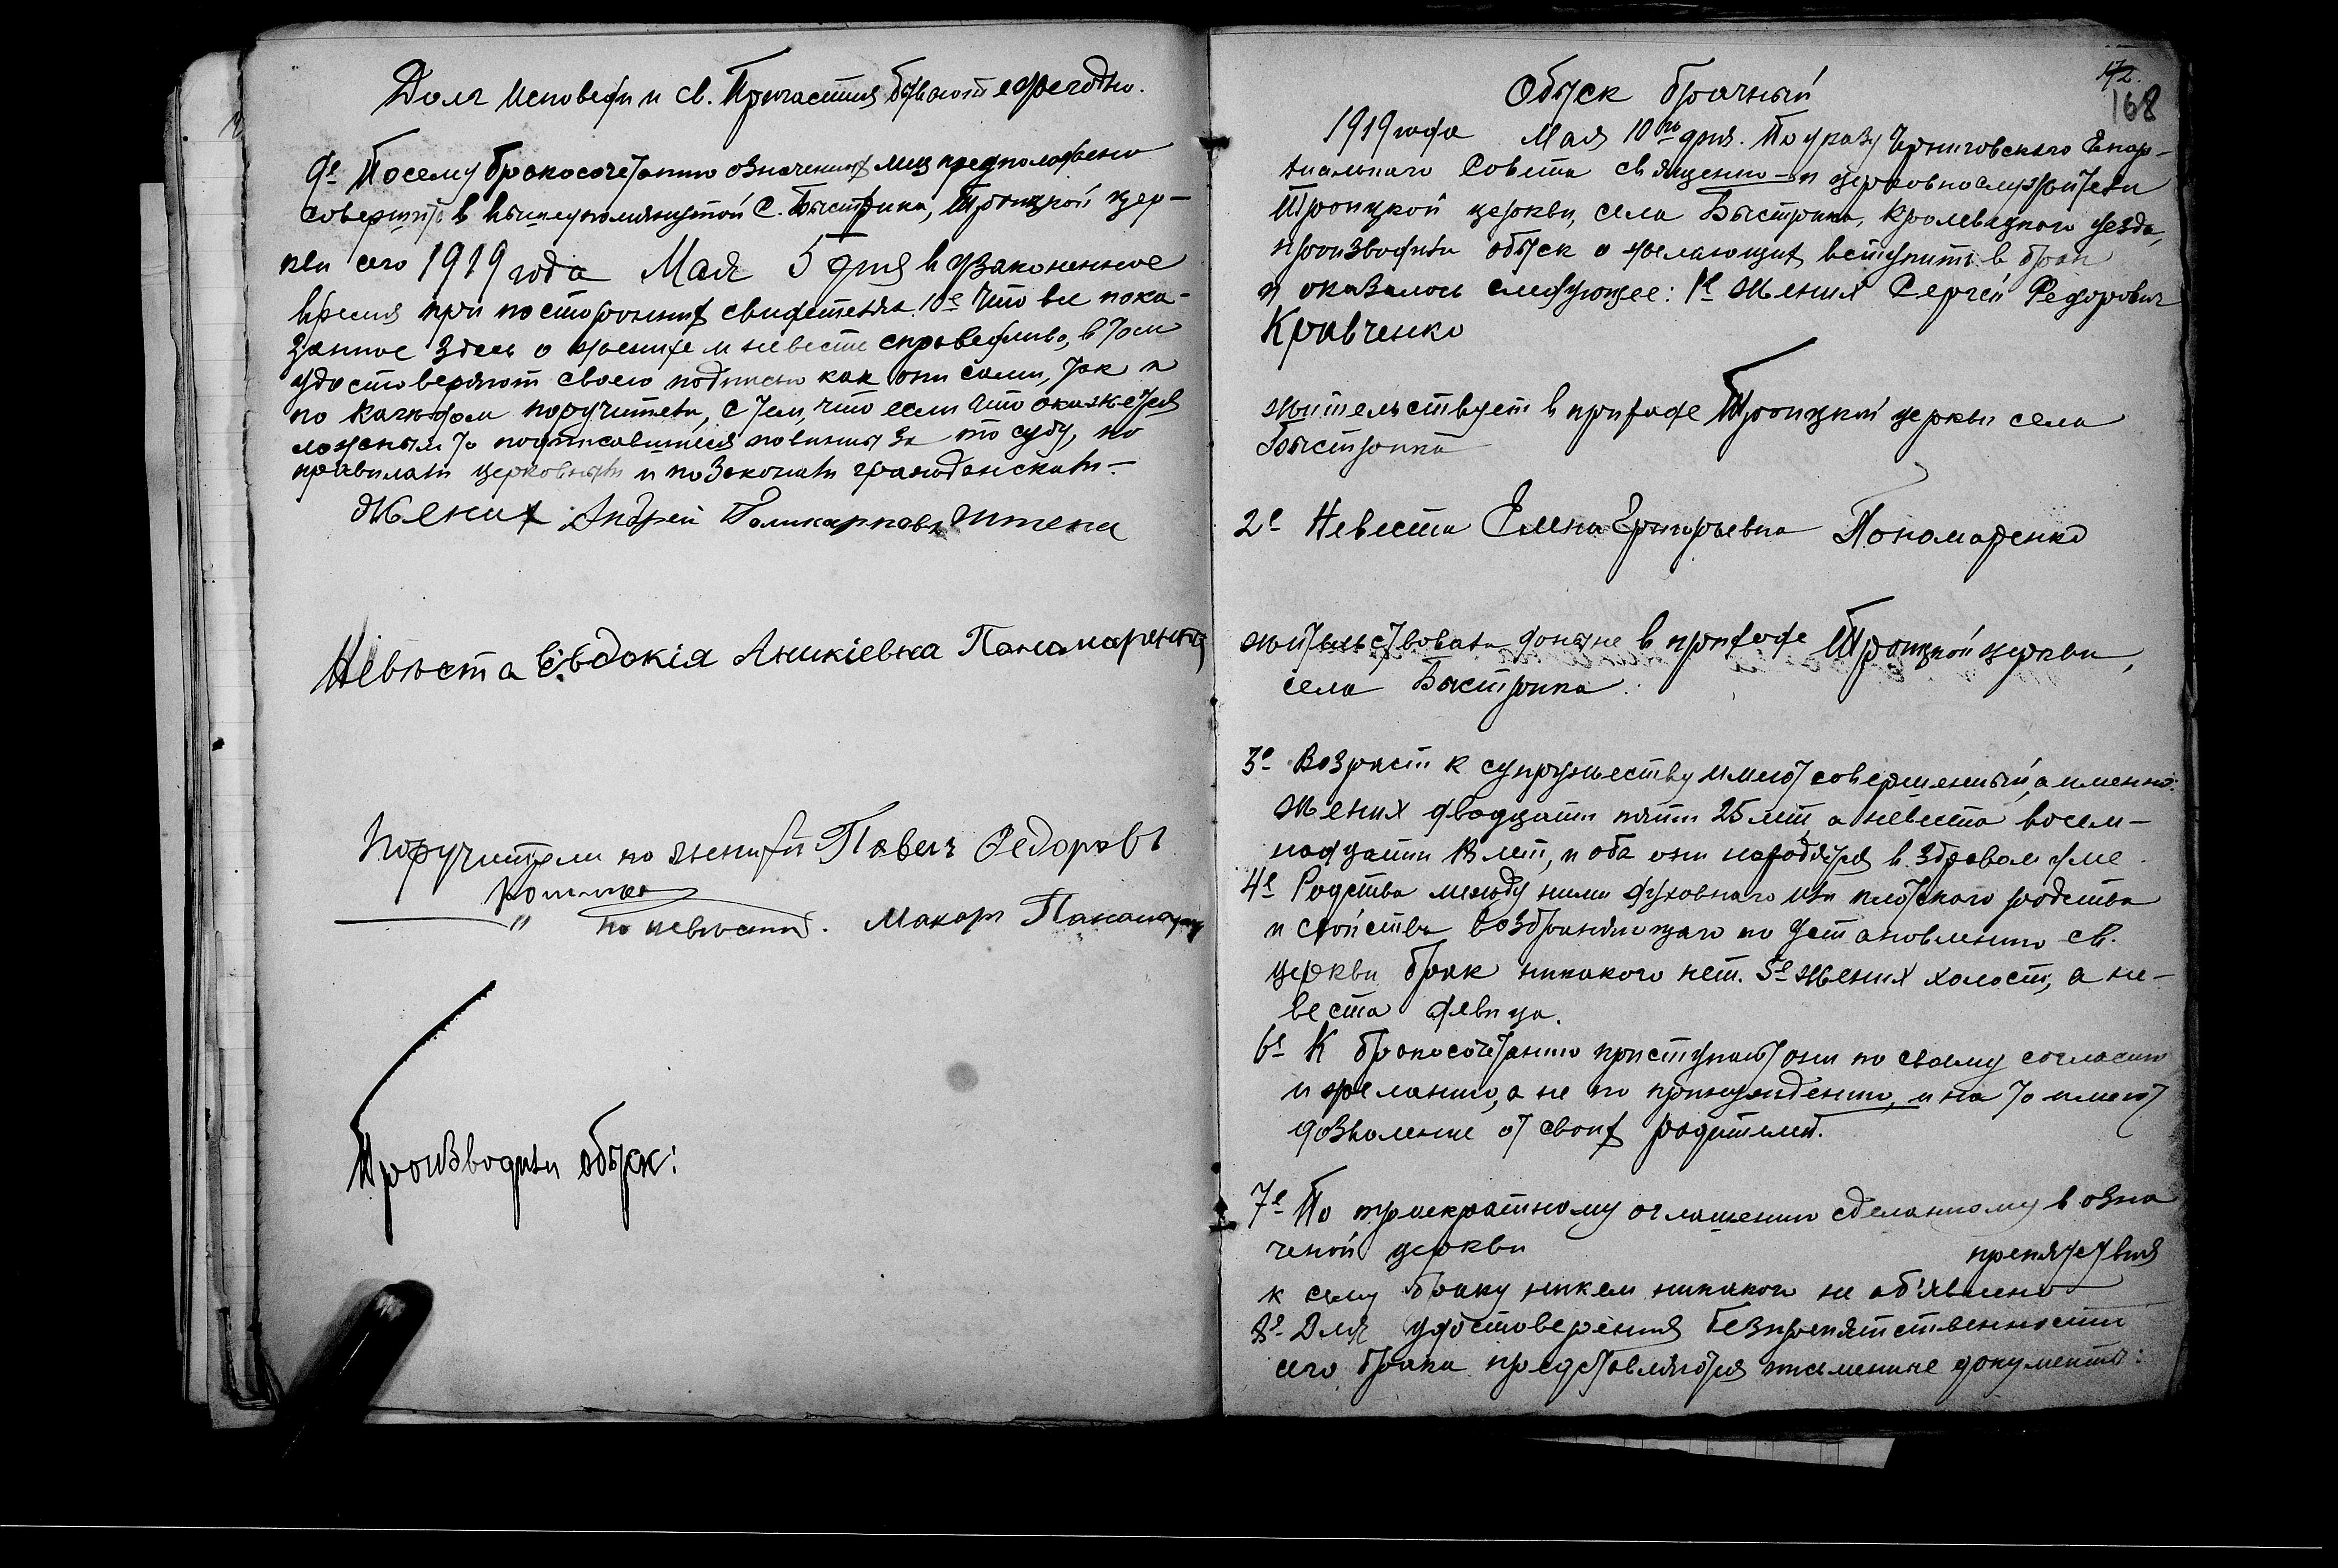 Долг исповеди и св. Причастия бывают ежегодно.
9е Посему бракосочетанию означенных лиц предположено
совершить в вышеупомянутой с. Быстрика, Троицкой цер-
кви сего 1919 года Мая 5 дня в узаконенное
время при посторонних свидетелях. 10е Что все пока-
занное здесь о женихе и невесте справедливо, в том
удостоверяют своею подписью как они сами, так и
по каждом поручители, с тем, что если что окажется
ложным то подписавшиеся повинны за то суду, по
правилам церковным и по законам гражданским.—
Жених Андрей Поликарповъ
Невѣста Евдокія Аникіевна Панамаренко
Поручители по жениху Павелъ Федоровъ
" по невѣстѣ. Макаръ Панамар
Производили обыск:
172.
168
Обыск брачный
1919 года Мая 10го дня. По указу Черниговского Епар-
хиального Совета священно- и церковнослужители
Троицкой церкви, села Быстрика, Кролевецкого уезда,
производили обыск о желающих вступить в брак
и оказалось следующее: 1е Жених Сергей Федорович
Кравченко
жительствует в приходе Троицкой церкви села
Быстрика
2е Невеста Елена Григорьевна Пономаренко
жительствовала доныне в приходе Троицкой церкви,
села Быстрика.
3е Возраст к супружеству имеют совершенный, а именно:
жених двадцати пяти 25 лет, а невеста восем-
надцати 18 лет, и оба они находятся в здравом уме.
4е Родства между ними духовного или плотского родства
и свойства возбраняющаго по установлению св.
церкви брак никакого нет. 5е Жених холост, а не-
веста девица.
6е К бракосочетанию приступают они по своему согласию
и желанию, а не по принуждению, и на то имеют
дозволение от своих родителей.
7е По троекратному оглашению сделанному в озна
ченой церкви препятствия
к сему браку никем никакого не объявлено
8е Для удостоверения безпрепятственности
сего брака представляются письменые документы: